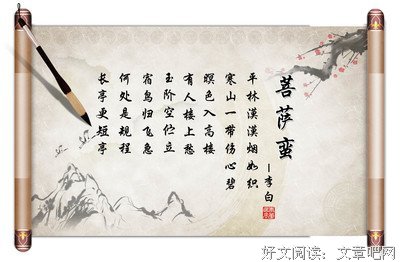 菩萨蛮
—李白
平林漠漠烟如织
寒山一带伤心碧
暝色入高楼
有人楼上愁
玉阶空伫立
宿鸟归飞急
何处是规程
长亭更短亭
好文阅读：文章吧网